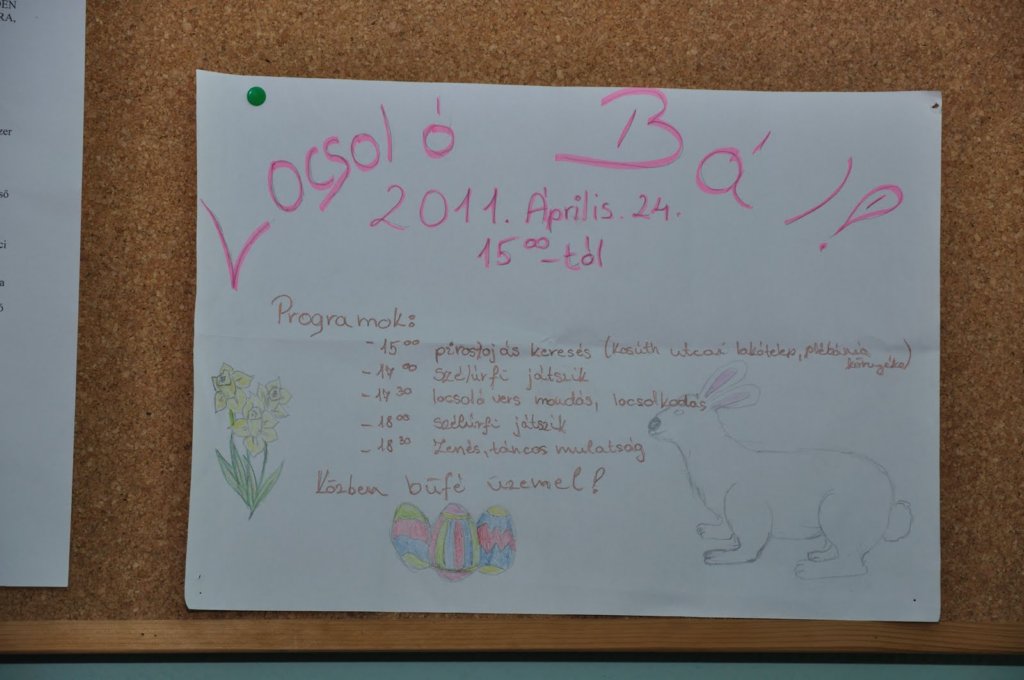 DEN
RA,
zer
ső
ci
a
ő
Locsoló Bál!?
2011. Április. 24.
15⁰⁰-tól
Programok:
- 15⁰⁰ pirostojás keresés (Kosúth utcai lakótelep, plébánia környéke)
- 17⁰⁰ Szélúrfi játszik
- 17³⁰ locsoló vers mondás, locsolkodás
- 18⁰⁰ Szélúrfi játszik
- 18³⁰ Zenés, táncos mulatság
Közben büfé üzemel!